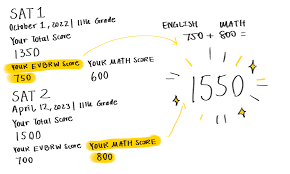 SAT 1
October 1, 2022 | 11th Grade
Your Total Score
1350
YOUR EVBRW SCORE YOUR MATH SCORE
750 600
SAT 2
April, 12, 2023 | 11th Grade
Your Total Score
1500
YOUR EVBRW SCORE YOUR MATH SCORE
700 800
ENGLISH MATH
750 + 800 =
1550